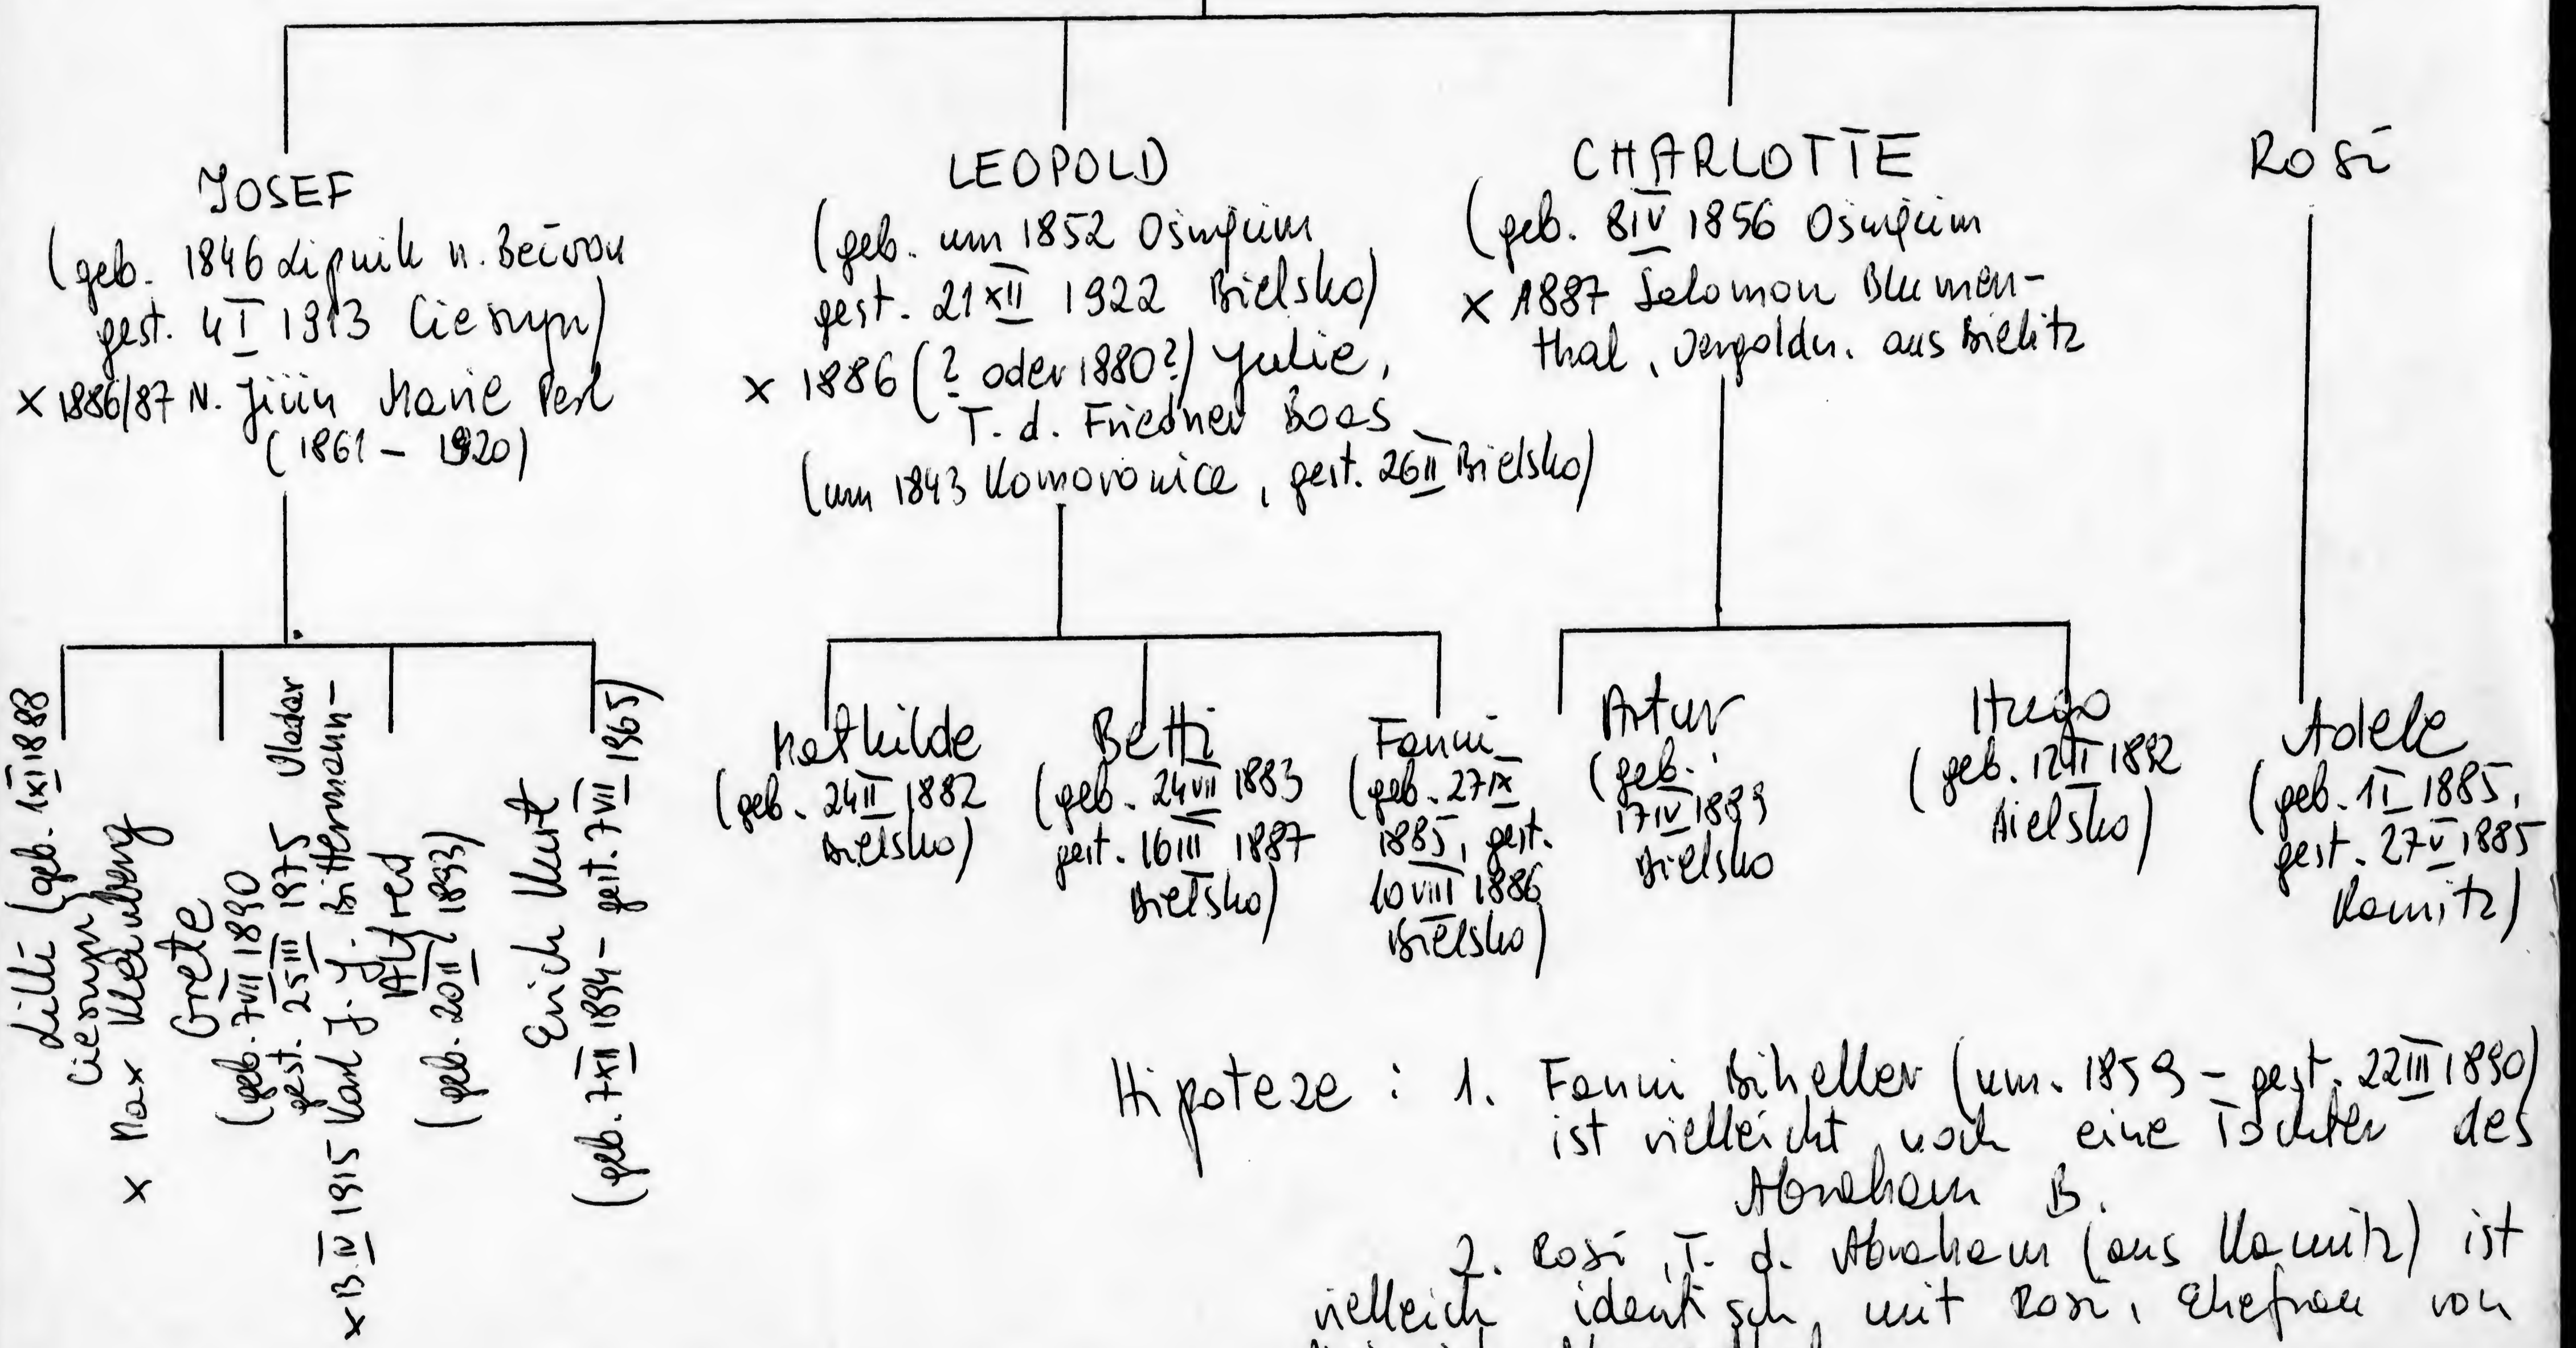 JOSEF
(geb. 1846 Lipnik n. Bečvou
gest. 4 I 1913 Cieszyn)
× 1886/87 N. Jičín Marie Perl
(1861 – 1920)
LEOPOLD
(geb. um 1852 Oświęcim
gest. 21 XII 1922 Bielsko)
× 1886 (? oder 1880?) Julie,
T. d. Friedner Boas
(um 1843 Komorowice, gest. 26 II Bielsko)
CHARLOTTE
(geb. 8 IV 1856 Oświęcim
× 1887 Salomon Blumen-
thal, aus Bielitz
Rosi
Lilli (geb. 1 XI 1888
Cieszyn)
× Max
Grete
(geb. 7 VII 1890
gest. 25 III 1975
× 13. IV 1915 Karl J. J. Bittermann-
Vladar
Alfred
(geb. 20 II 1893)
Erich Kurt
(geb. 7 XII 1894 – gest. 7 VII 1965)
Mathilde
(geb. 24 II 1882
Bielsko)
Betti
(geb. 24 VII 1883
gest. 16 III 1887
Bielsko)
Fanni
(geb. 27 IX
1885, gest.
10 VIII 1886
Bielsko)
Artur
(geb.
17 IV 1889
Bielsko
Hugo
(geb. 12 II 1892
Bielsko)
Adele
(geb. 1 I 1885,
gest. 27 V 1885
Kamitz)
Hipoteze : 1. Fanni Biheller (um. 1859 – gest. 22 III 1890)
ist vielleicht noch eine Tochter des
Abraham B.
2. Rosi, T. d. Abraham (aus Kamitz) ist
vielleich identisch mit Rosi, Ehefrau von